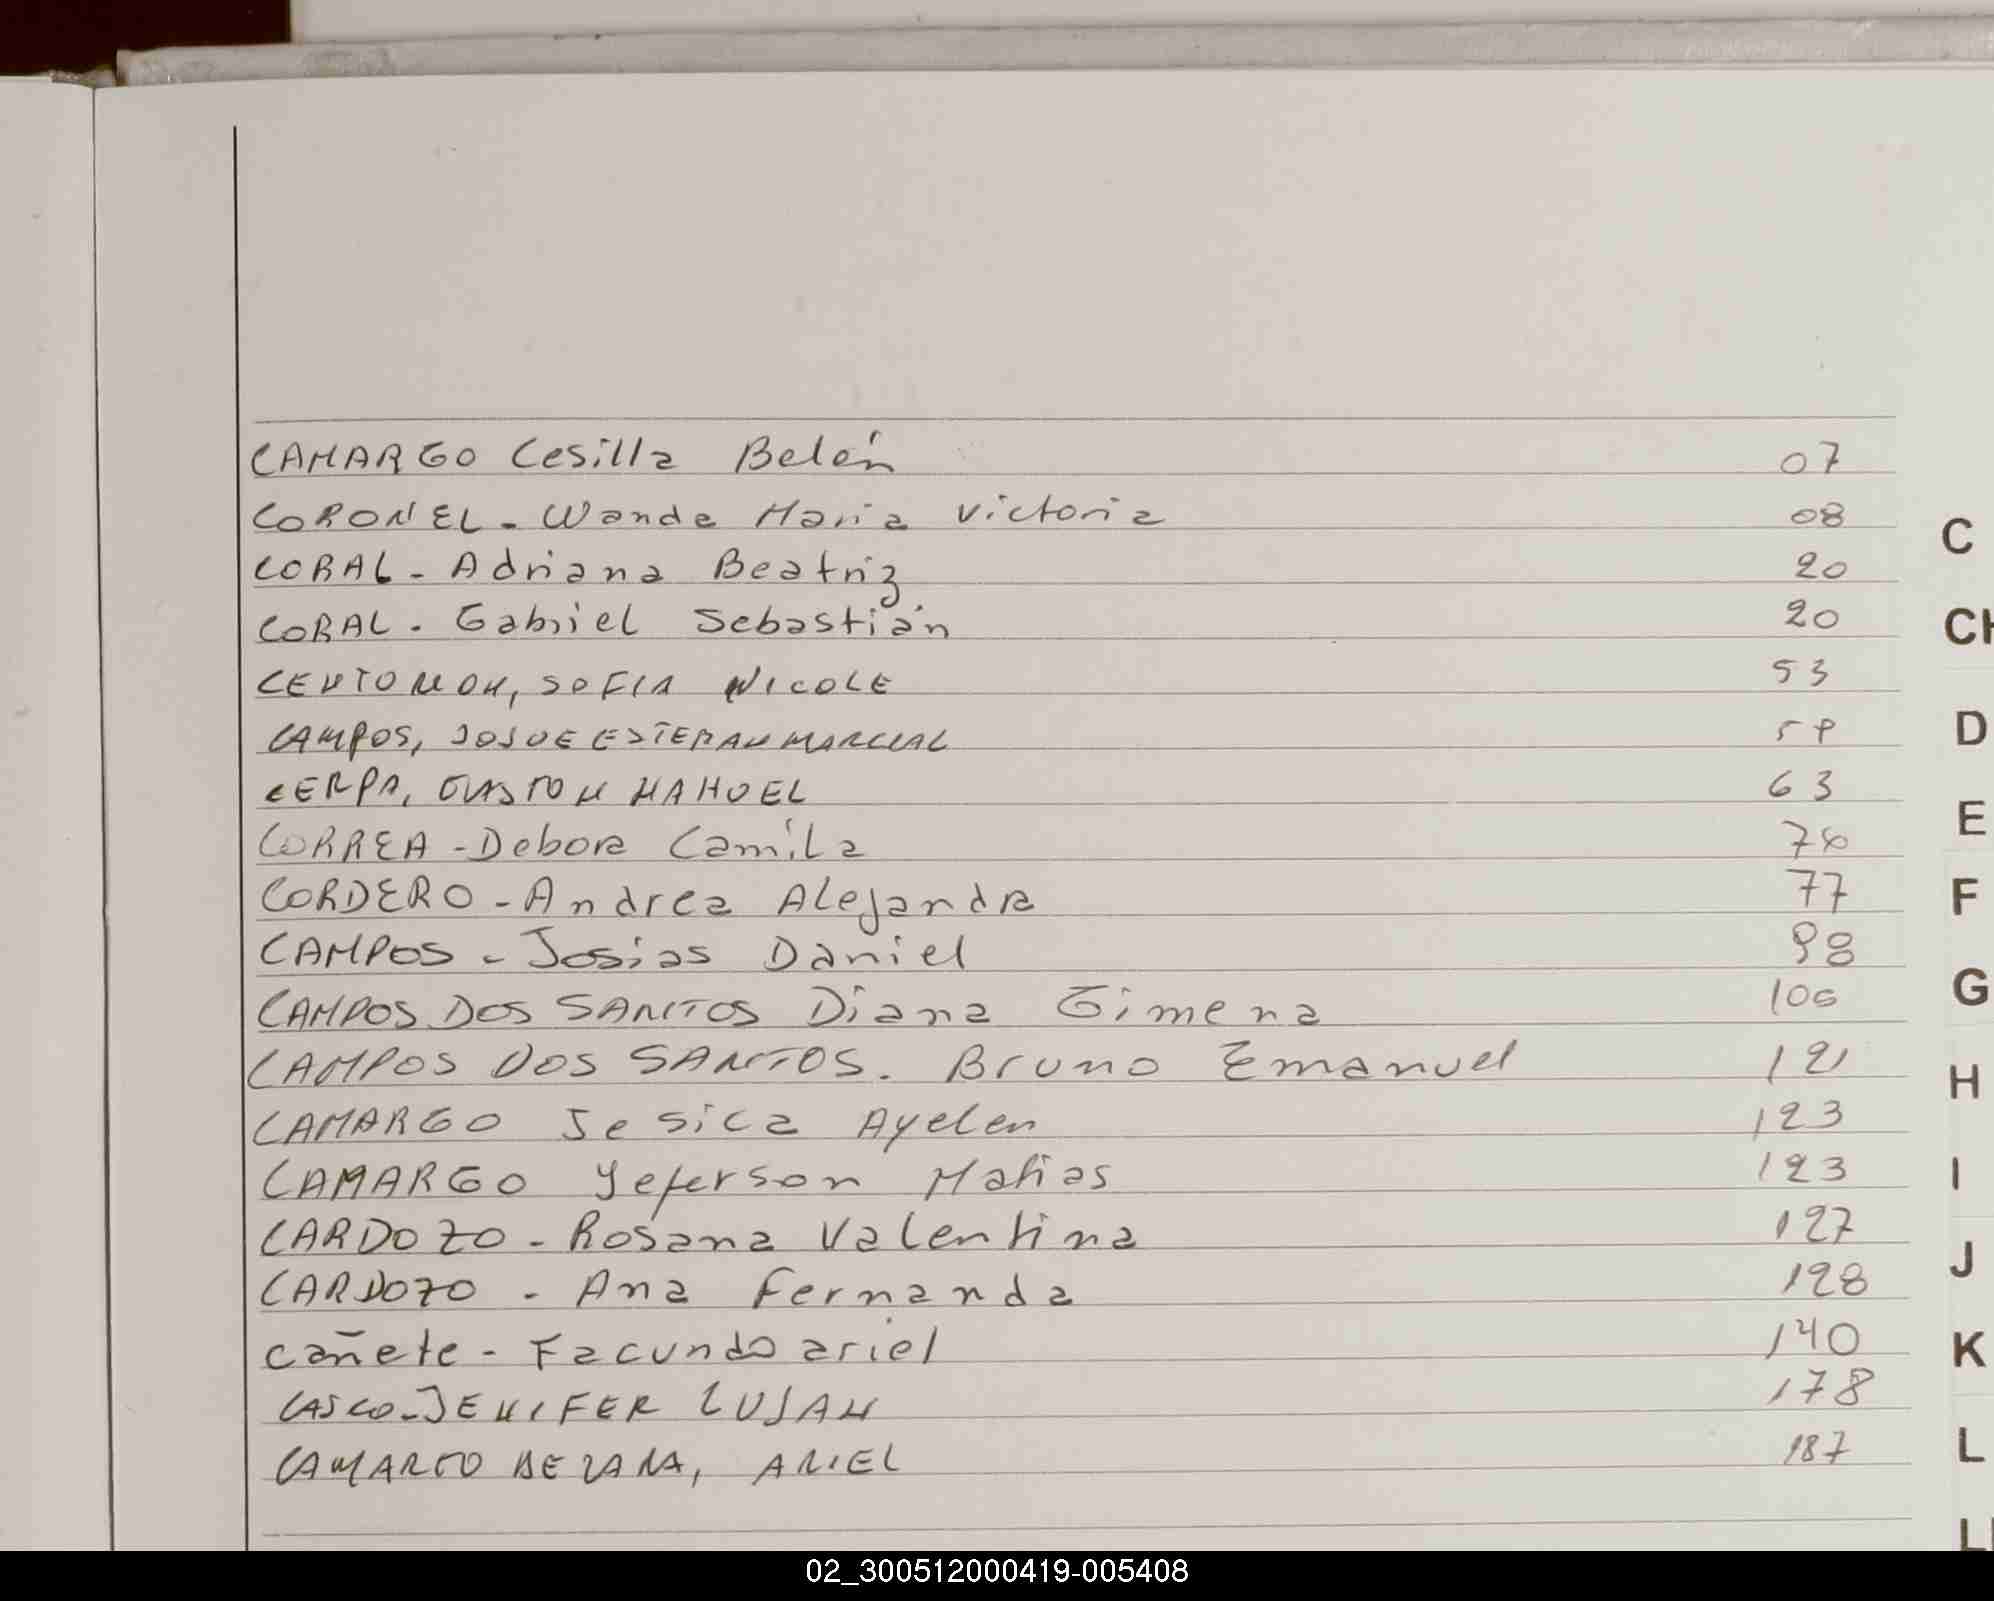 CAMARGO Cesilla Belén 07
CORONEL - Wanda Maria Victoria 08
CORAL - Adriana Beatriz 20
CORAL - Gabriel Sebastián 20
CENTOMON, SOFIA NICOLE 53
CAMPOS, JOSUE ESTEBAN MARCIAL
CERPA, GASTON NAHUEL 63
CORREA - Debora Camila
CORDERO - Andrea Alejandra 77
CAMPOS - Josias Daniel 98
CAMPOS DOS SANTOS Diana Gimena
CAMPOS DOS SANTOS. Bruno Emanuel 121
CAMARGO Jesica Ayelen 123
CAMARGO Yeferson Matias 123
CARDOZO - Rosana Valentina 127
CARDOZO - Ana Fernanda 128
Cañete - Facundo ariel 140
CASCO - JENIFER LUJAN 178
CAMARGO ARIEL 187
C
CH
D
E
F
G
H
I
J
K
L
02_300512000419-005408